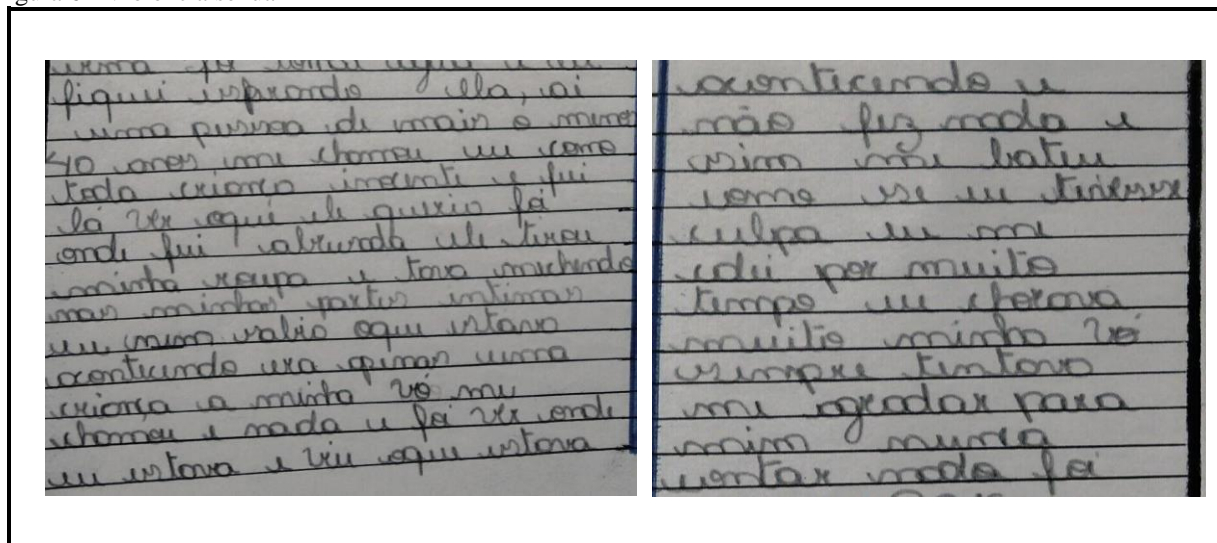 fiquei isperando ella, ai
uma pessoa de mais o menos
40 anos me chamou eu como
toda criança inocente e fui
lá ver oqui ele queria fá
onde fui abrunda ele tirou
minha roupa e tava mechendo
nas minhas partes intimas
eu num sabio oque estava
acontecendo era apenas uma
criança a minha vó me
chamou e nada e foi ver onde
eu estava e viu oque estava
acontecendo e
não fez nada e
sim me bateu
como se eu tivesse
culpa eu me
calei por muito
tempo eu chorava
muito minha vó
sempre tentava
me agradar para
mim nunca
contar nada foi